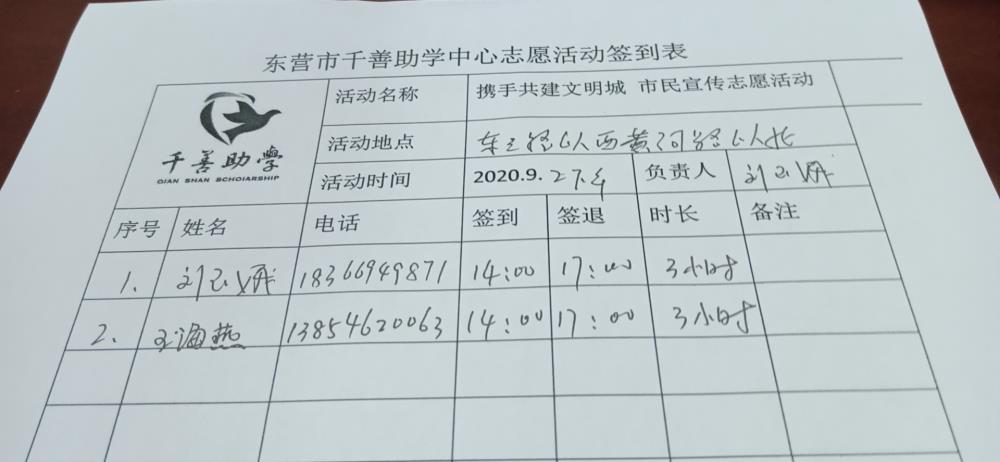 东营市千善助学中心志愿活动签到表
千善助學
QIAN SHAN SCHOIARSHIP
活动名称 携手共建文明城 市民宣传志愿活动
活动地点 东三路以西黄河路以北
活动时间 2020.9.2下午 负责人 刘玉
序号 姓名 电话 签到 签退 时长 备注
1. 刘玉 18366949871 14:00 17:00 3小时
2. 王海燕 13854620063 14:00 17:00 3小时